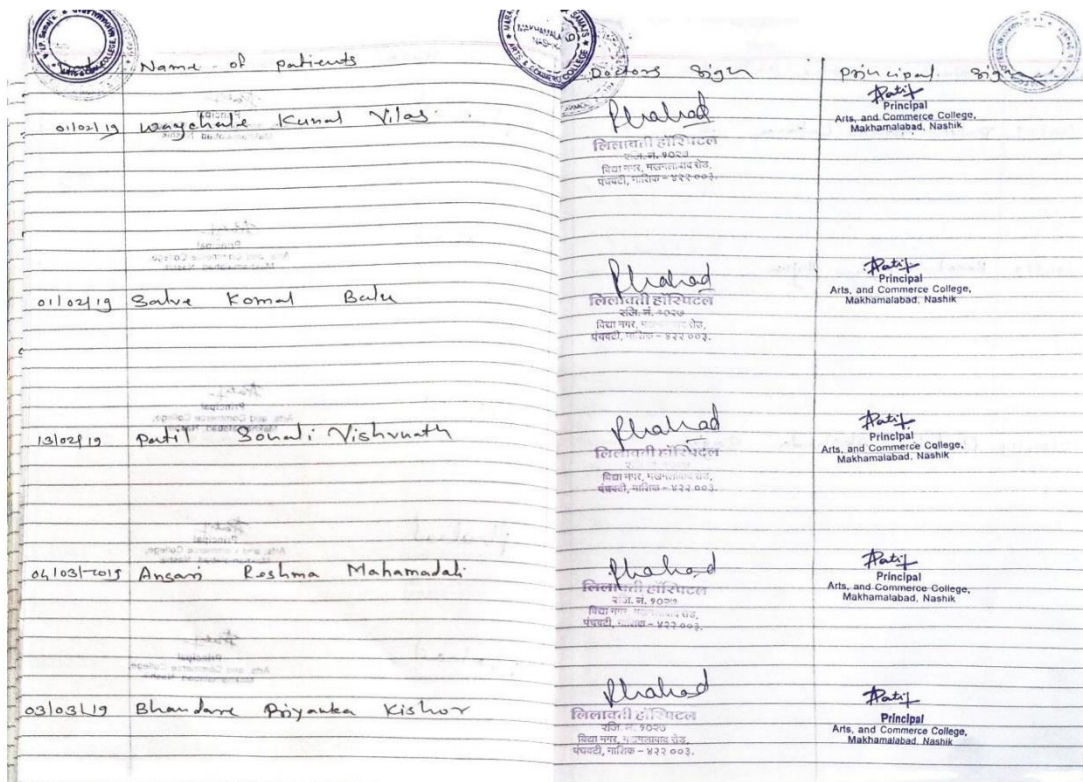 Name of patients
Doctors Sign
Principal Sign
01/02/19 Waychale Kunal Vilas
Phahad
लिलावती हॉस्पिटल
रजि. नं. १०२७
विद्या नगर, मखमलाबाद रोड,
पंचवटी, नाशिक - ४२२ ००३.
Patil
Principal
Arts, and Commerce College,
Makhamalabad, Nashik
01/02/19 Salve Komal Balu
Phahad
लिलावती हॉस्पिटल
रजि. नं. १०२७
विद्या नगर, रोड,
पंचवटी, नाशिक - ४२२ ००३.
Patil
Principal
Arts, and Commerce College,
Makhamalabad, Nashik
13/02/19 Patil Sonali Vishvnath
Phahad
लिलावती हॉस्पिटल
विद्या नगर, मखमलाबाद रोड,
पंचवटी, नाशिक - ४२२ ००३.
Patil
Principal
Arts, and Commerce College,
Makhamalabad, Nashik
04/03/2019 Ansari Reshma Mahamadali
Phahad
लिलावती हॉस्पिटल
रजि. नं. १०२७
विद्या नगर, रोड,
पंचवटी, - ४२२ ००३.
Patil
Principal
Arts, and Commerce College,
Makhamalabad, Nashik
03/03/19 Bhandare Priyanka Kishor
Phahad
लिलावती हॉस्पिटल
रजि. नं. १०२७
विद्या नगर, मखमलाबाद रोड,
पंचवटी, नाशिक - ४२२ ००३.
Patil
Principal
Arts, and Commerce College,
Makhamalabad, Nashik